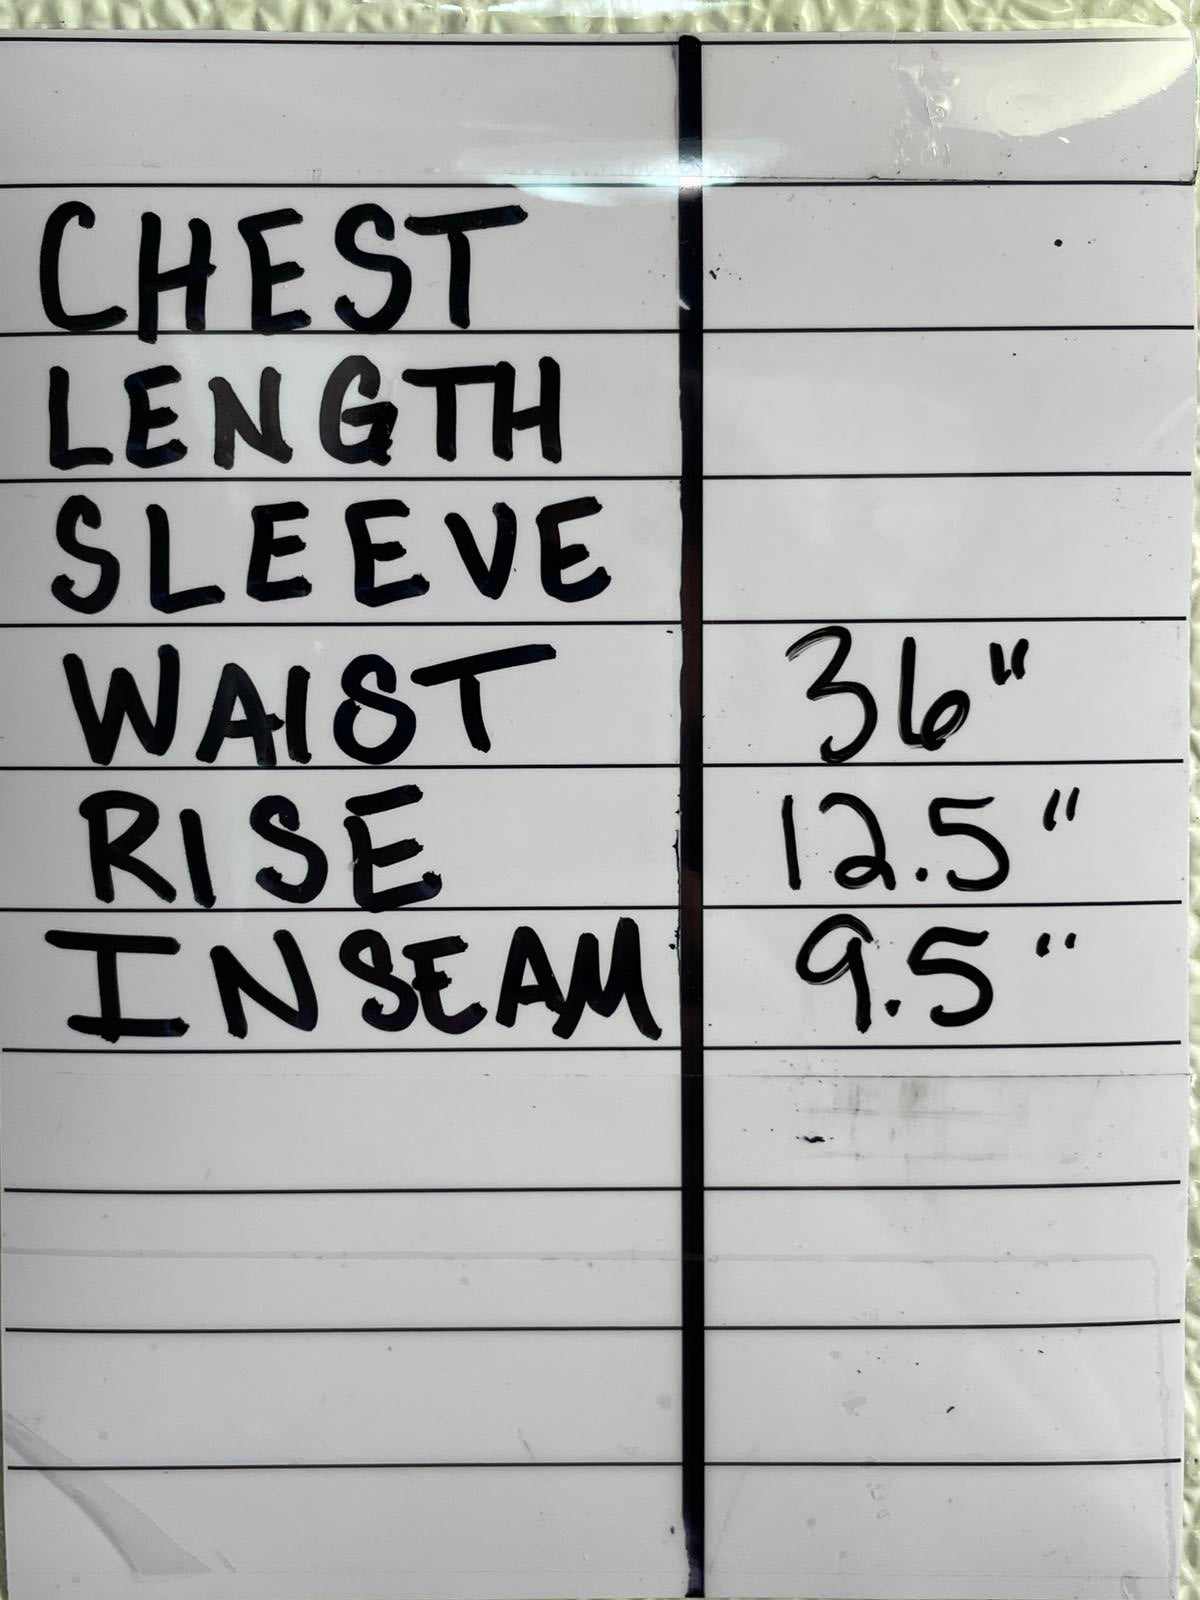 CHEST
LENGTH
SLEEVE
WAIST 36"
RISE 12.5"
INSEAM 9.5"